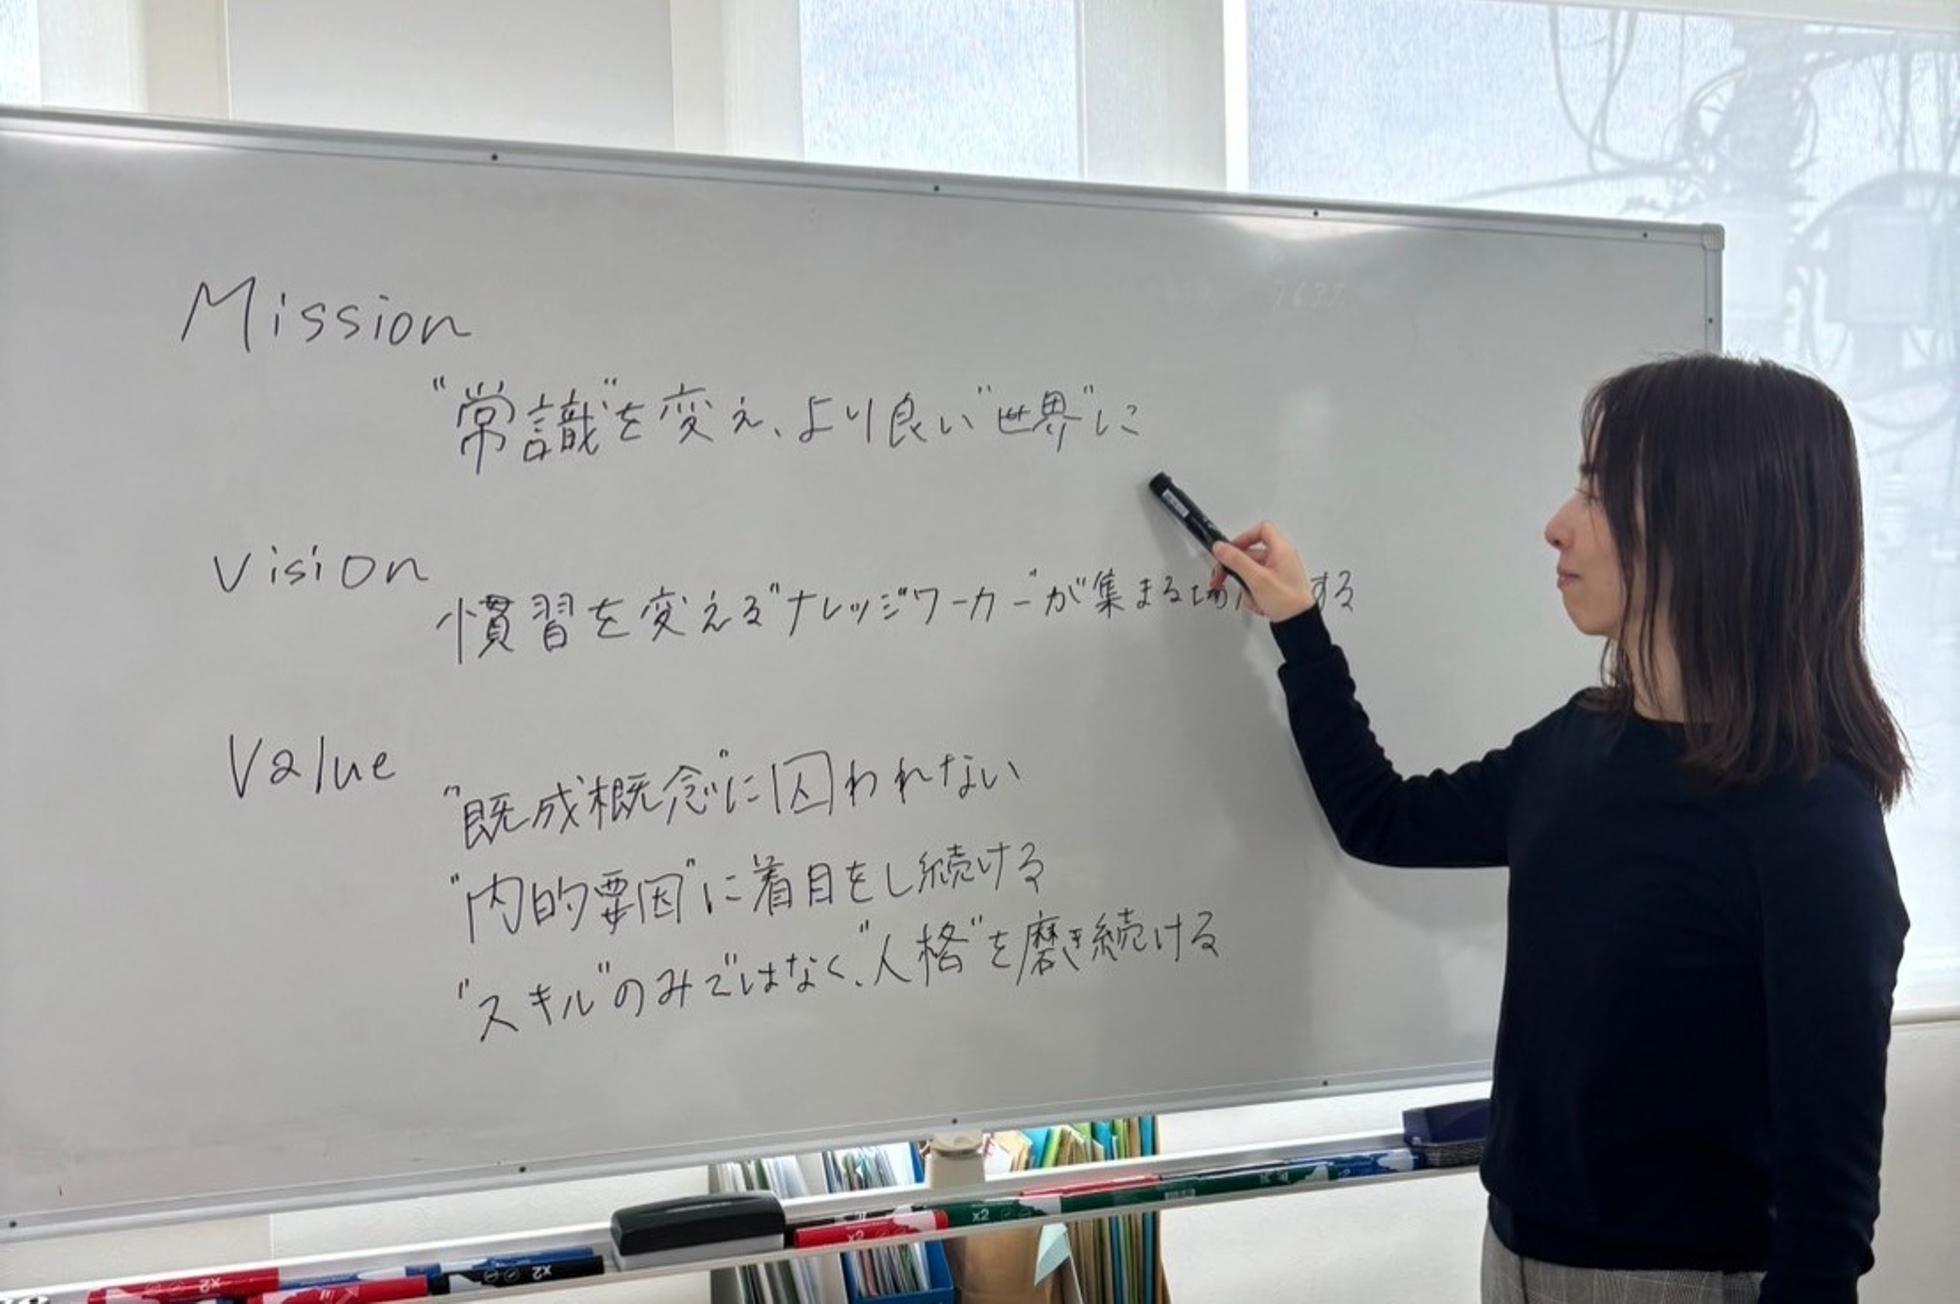 Mission
"常識"を変え、より良い"世界"に
Vision
慣習を変える"ナレッジワーカー"が集まる場 する
Value
"既成概念"に囚われない
"内的要因"に着目をし続ける
"スキル"のみではなく、"人格"を磨き続ける
x2
x2
x2
x2